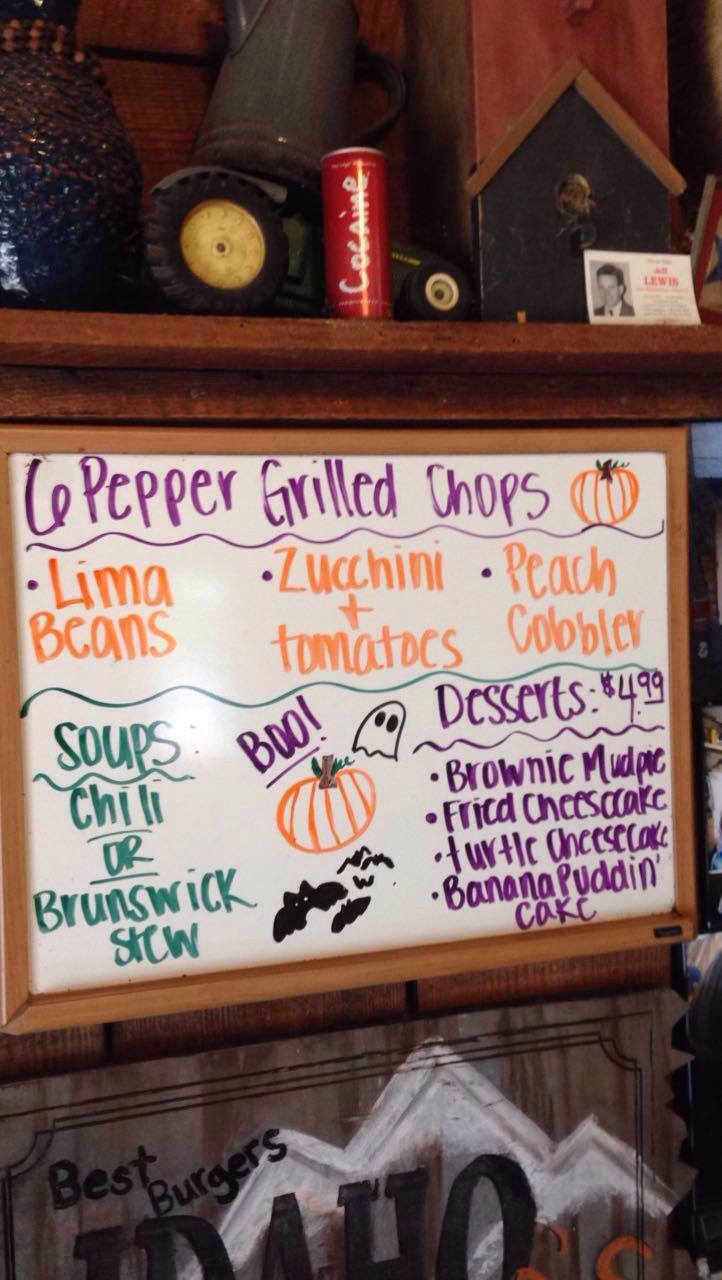 Cocaine
Jeff
LEWIS
6 Pepper Grilled Chops
• Lima Beans
• Zucchini + tomatoes
• Peach Cobbler
Soups
Chili
OR
Brunswick
Stew
BOO!
Desserts: $4.99
• Brownie Mudpie
• Fried Cheesecake
• turtle Cheesecake
• Banana Puddin'
cake
Best
Burgers
IDAHO's